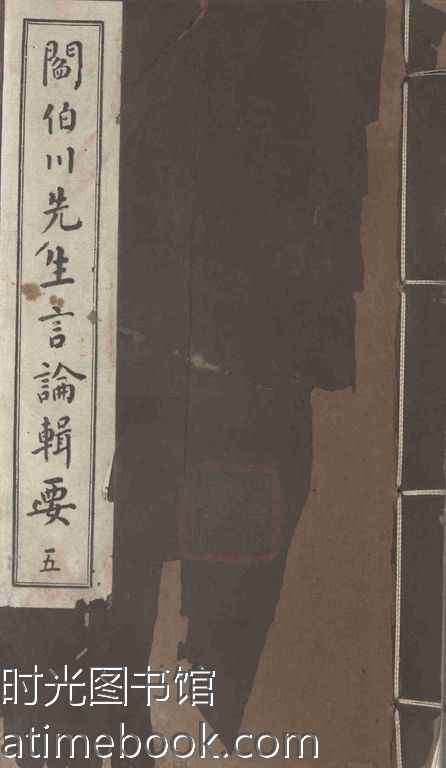 閻伯川先生言論輯要 五
时光图书馆
atimebook.com